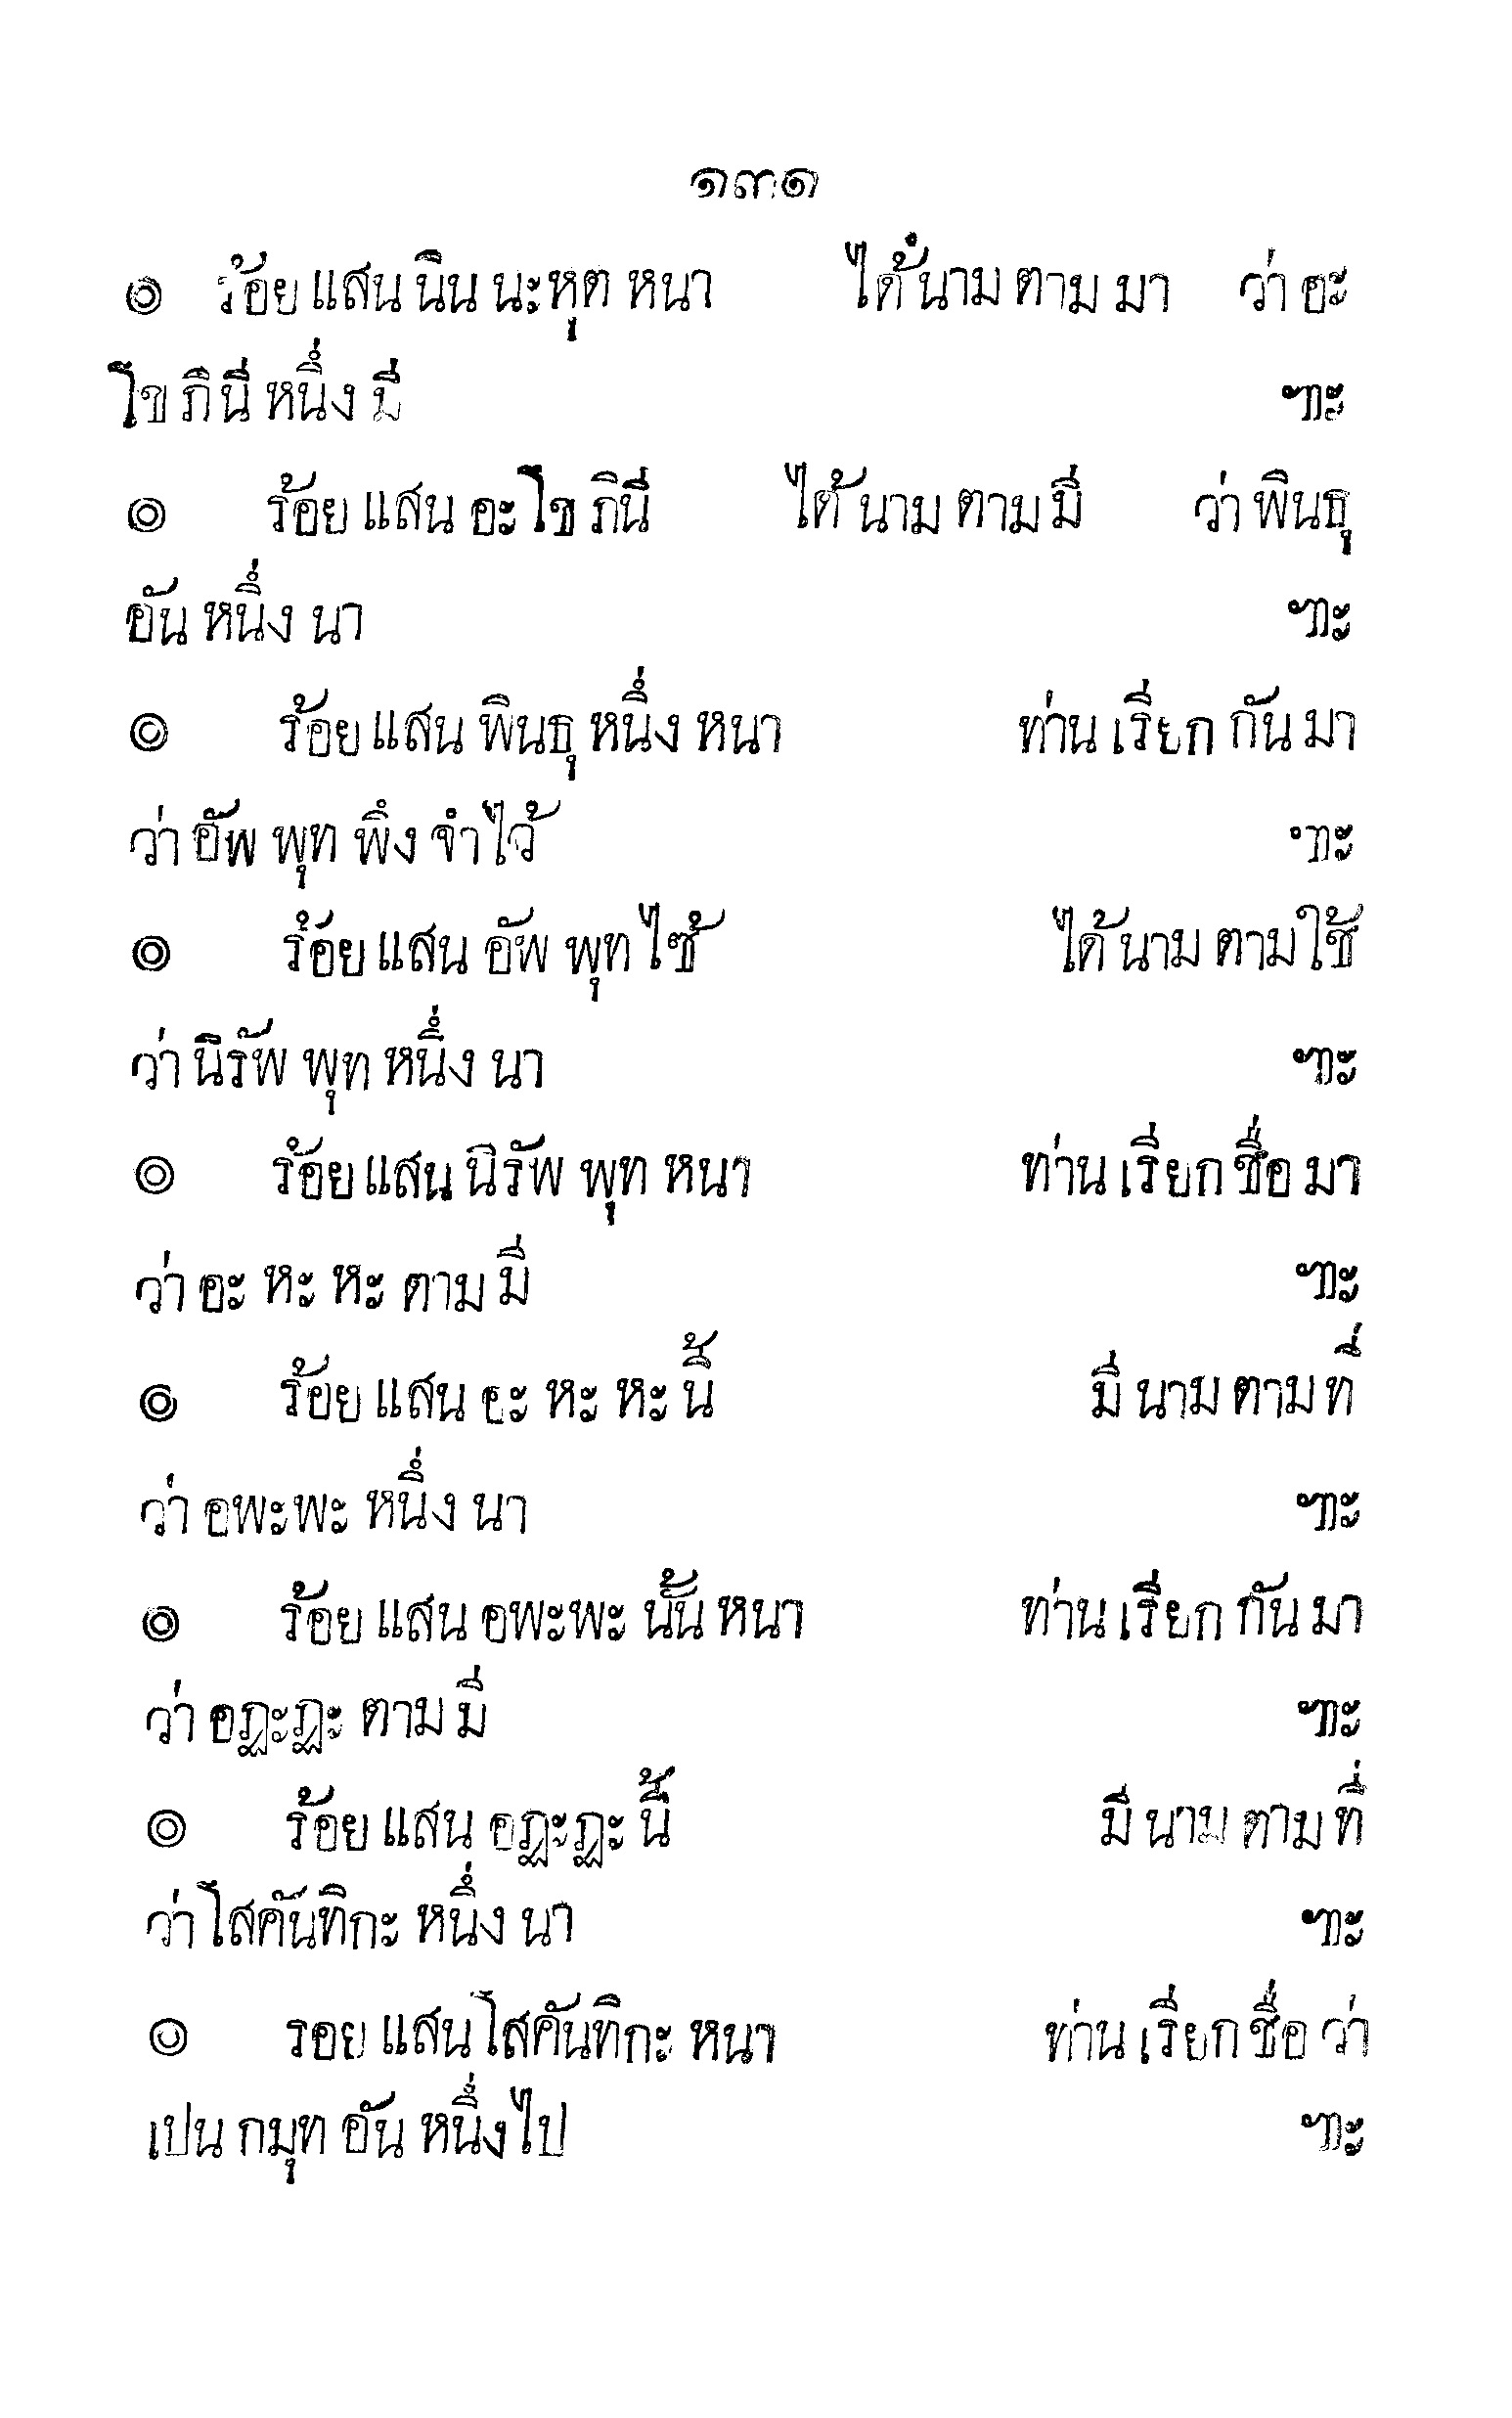 ๑๓๑
๏ ร้อย แสน นิน นะหุต หนา ได้นาม ตาม มา ว่า อะ
โข ภินี หนึ่ง มี ฯะ
๏ ร้อย แสน อะโข ภินี ได้ นาม ตาม มี ว่า พินธุ
อัน หนึ่ง นา ฯะ
๏ ร้อย แสน พินธุ หนึ่ง หนา ท่าน เรียก กัน มา
ว่า อัพ พุท พึง จำไว้ ฯะ
๏ ร้อย แสน อัพ พุท ไซ้ ได้ นาม ตามใช้
ว่า นิรัพ พุท หนึ่ง นา ฯะ
๏ ร้อย แสน นิรัพ พุท หนา ท่าน เรียก ชื่อ มา
ว่า อะ หะ หะ ตาม มี ฯะ
๏ ร้อย แสน อะ หะ หะ นี้ มี นาม ตาม ที่
ว่า อพะพะ หนึ่ง นา ฯะ
๏ ร้อย แสน อพะพะ นั้น หนา ท่าน เรียก กัน มา
ว่า อฏะฏะ ตาม มี ฯะ
๏ ร้อย แสน อฏะฏะ นี้ มี นาม ตาม ที่
ว่า โสคันทิกะ หนึ่ง นา ฯะ
๏ รอย แสน โสคันทิกะ หนา ท่าน เรียก ชื่อ ว่า
เปน กมุท อัน หนึ่งไป ฯะ